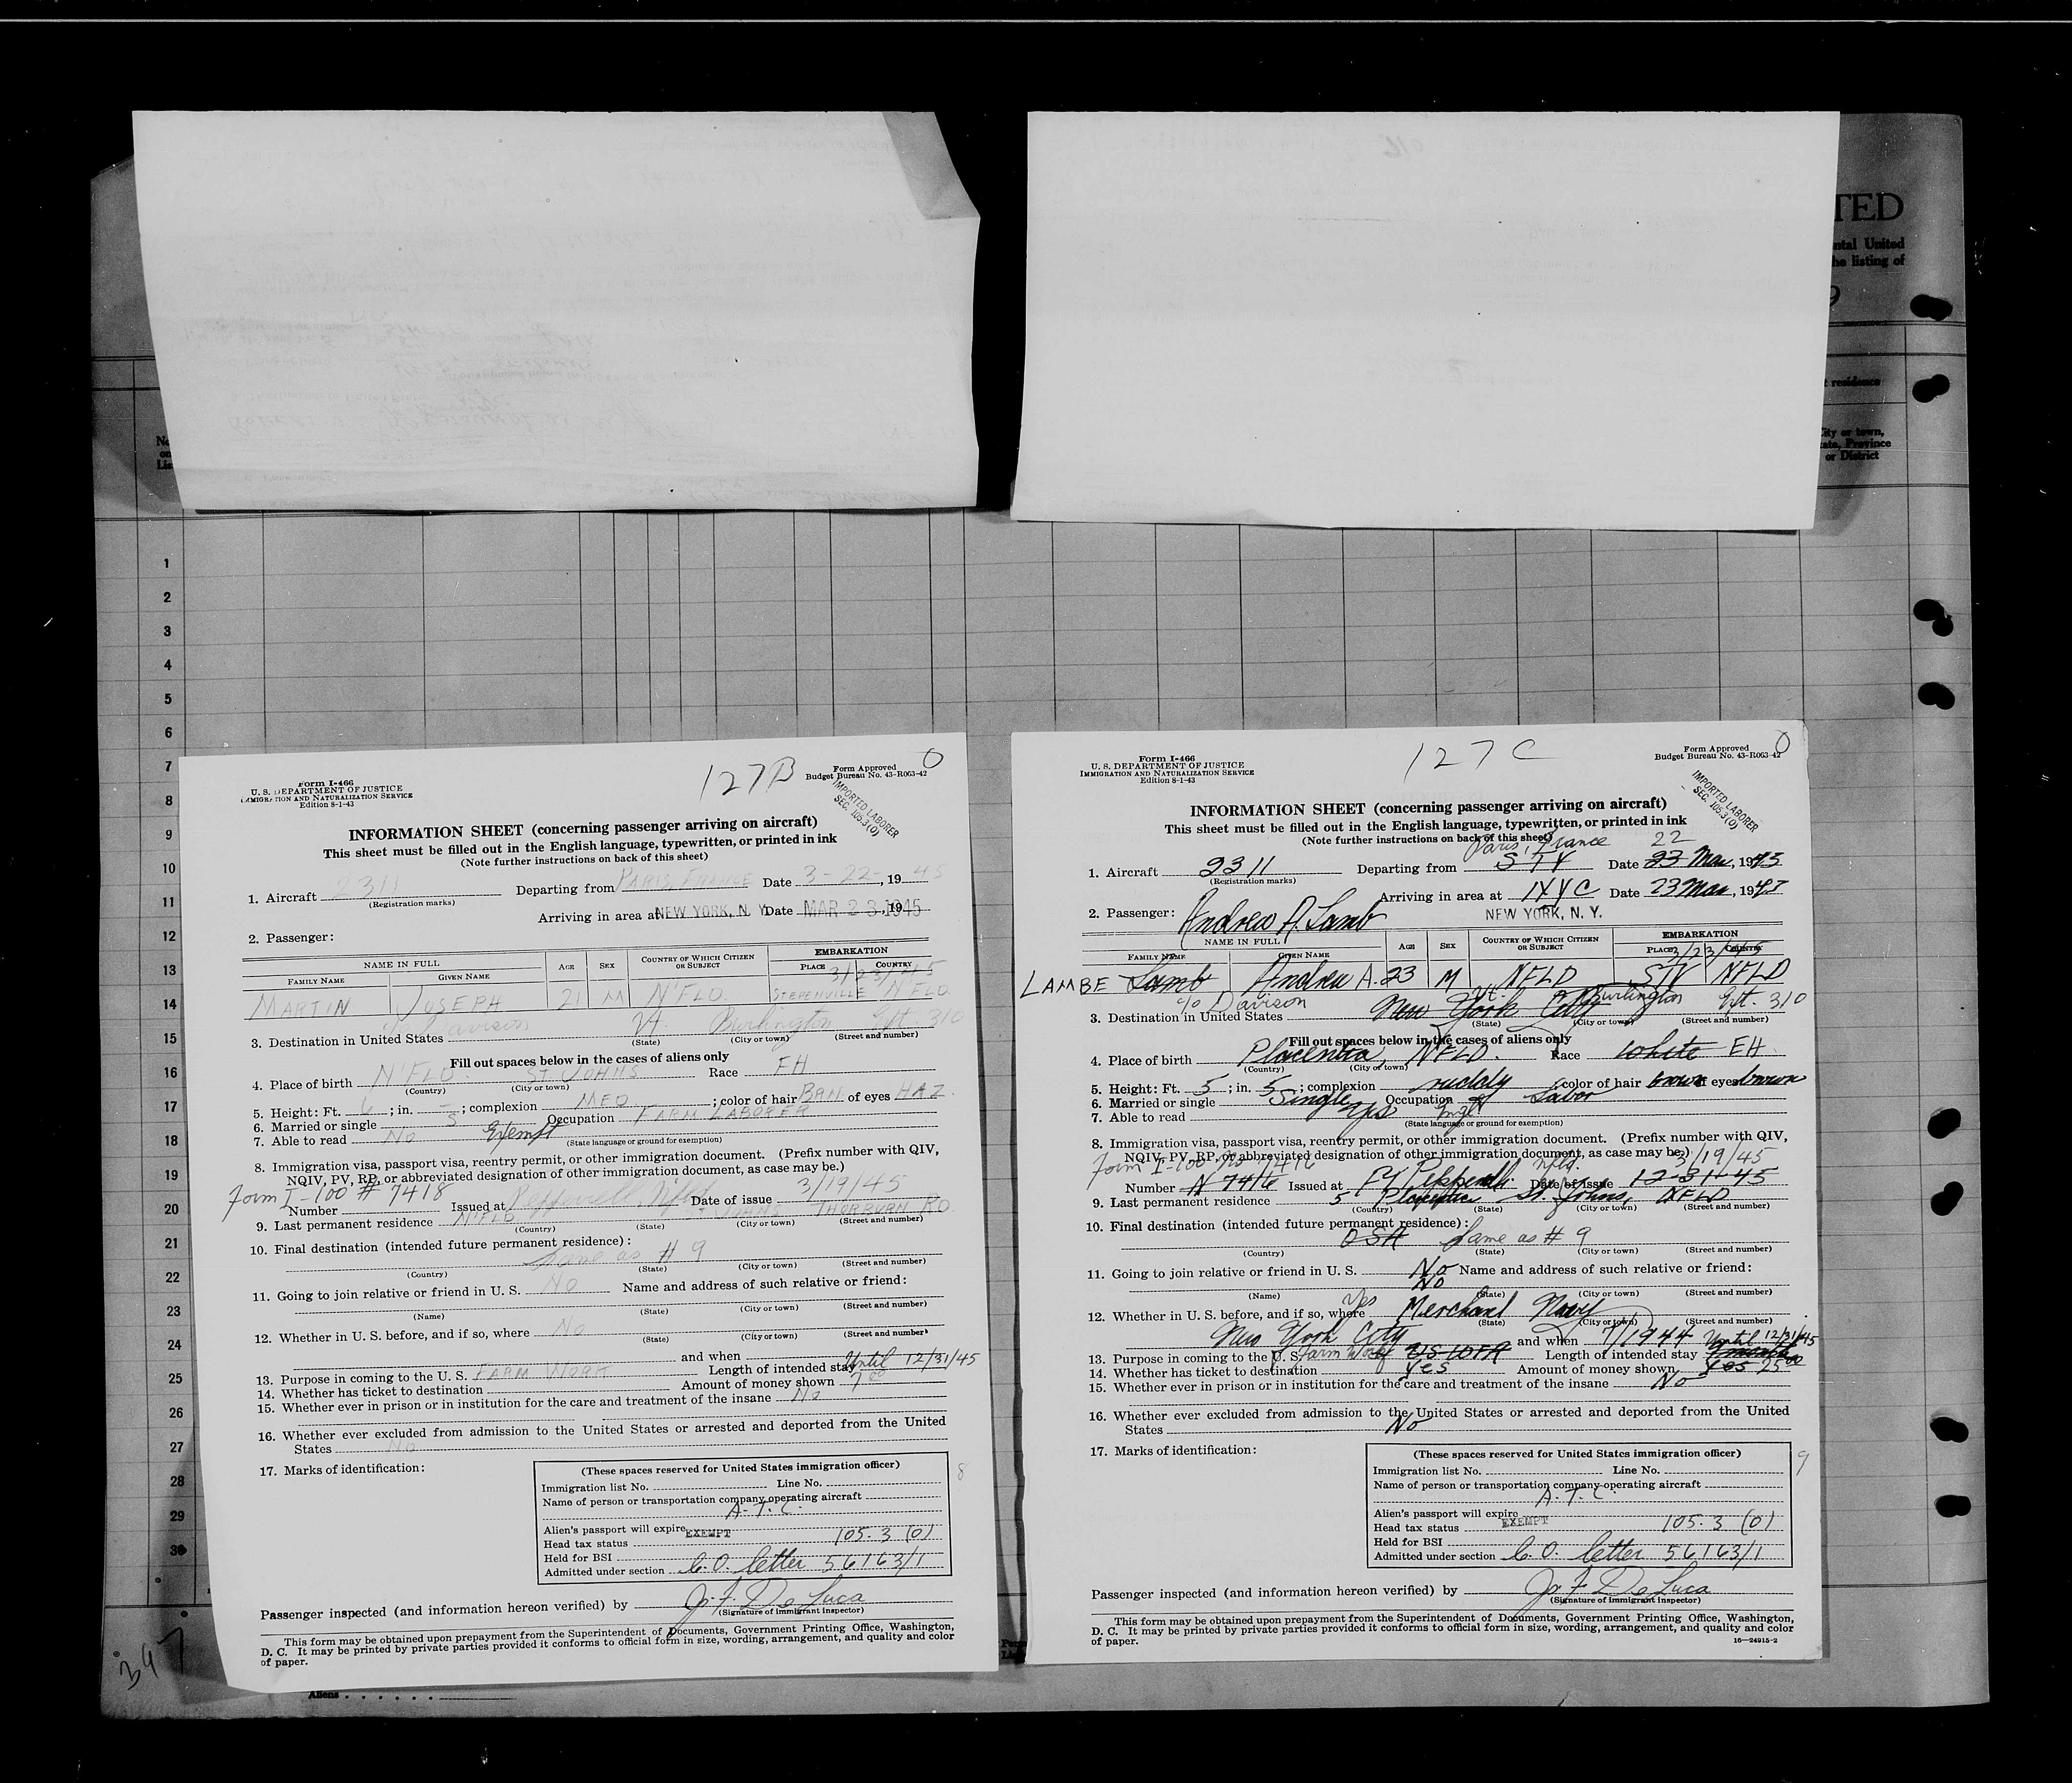 TED
ntal United
he listing of
9
t residence
City or town,
tate, Province
or District
No
on
Lis
1
2
3
4
5
6
7
8
9
10
11
12
13
14
15
16
17
18
19
20
21
22
23
24
25
26
27
28
29
30
347
Aliens
Form I-466
U. S. DEPARTMENT OF JUSTICE
IMMIGRATION AND NATURALIZATION SERVICE
Edition 8-1-43
127B
Form Approved
Budget Bureau No. 43-R063-42
0
IMPORTED LABORER
SEC. 105.3(O)
INFORMATION SHEET (concerning passenger arriving on aircraft)
This sheet must be filled out in the English language, typewritten, or printed in ink
(Note further instructions on back of this sheet)
1. Aircraft 2311 Departing from PARIS, FRANCE Date 3-22-, 1945
(Registration marks)
Arriving in area at NEW YORK, N. Y. Date MAR 23 1945, 19
2. Passenger:
NAME IN FULL AGE SEX COUNTRY OF WHICH CITIZEN OR SUBJECT EMBARKATION
FAMILY NAME GIVEN NAME PLACE COUNTRY
3/23/45
MARTIN JOSEPH 21 M N'FLD. STEPENVILLE N'FLD.
c/o Davison Vt. Burlington Gft. 310
3. Destination in United States
(State) (City or town) (Street and number)
Fill out spaces below in the cases of aliens only
4. Place of birth N'FLD. ST. JOHNS Race EH
(Country) (City or town)
5. Height: Ft. 6; in. –; complexion MED.; color of hair BRN. of eyes HAZ.
6. Married or single S Occupation FARM LABORER
7. Able to read No Exempt
(State language or ground for exemption)
8. Immigration visa, passport visa, reentry permit, or other immigration document. (Prefix number with QIV,
NQIV, PV, RP, or abbreviated designation of other immigration document, as case may be.)
Form I-100 # 7418
Number Issued at Pepperrell, Nfld Date of issue 3/19/45
9. Last permanent residence N'FLD. ST. JOHNS THORBURN RD.
(Country) (State) (City or town) (Street and number)
10. Final destination (intended future permanent residence):
Same as # 9
(Country) (State) (City or town) (Street and number)
11. Going to join relative or friend in U. S. No Name and address of such relative or friend:
(Name) (State) (City or town) (Street and number)
12. Whether in U. S. before, and if so, where No
(State) (City or town) (Street and number)
and when
13. Purpose in coming to the U. S. FARM WORK Length of intended stay Until 12/31/45
14. Whether has ticket to destination Amount of money shown 7.00
15. Whether ever in prison or in institution for the care and treatment of the insane No
16. Whether ever excluded from admission to the United States or arrested and deported from the United
States No
17. Marks of identification:
(These spaces reserved for United States immigration officer)
8
Immigration list No. Line No.
Name of person or transportation company operating aircraft
A. T. C.
Alien's passport will expire
Head tax status EXEMPT 105.3 (0)
Held for BSI
Admitted under section C.O. letter 56163/1
Passenger inspected (and information hereon verified) by J. F. De Luca
(Signature of immigrant inspector)
This form may be obtained upon prepayment from the Superintendent of Documents, Government Printing Office, Washington,
D. C. It may be printed by private parties provided it conforms to official form in size, wording, arrangement, and quality and color
of paper.
Form I-466
U. S. DEPARTMENT OF JUSTICE
IMMIGRATION AND NATURALIZATION SERVICE
Edition 8-1-43
127C
Form Approved
Budget Bureau No. 43-R063-42
0
IMPORTED LABORER
SEC. 105.3(O)
INFORMATION SHEET (concerning passenger arriving on aircraft)
This sheet must be filled out in the English language, typewritten, or printed in ink
(Note further instructions on back of this sheet)
Paris, France 22
1. Aircraft 2311 Departing from STV Date 23 Mar, 1945
(Registration marks)
Arriving in area at 1XYC Date 23 Mar, 1945
NEW YORK, N. Y.
2. Passenger: Andrew A. Lamb
NAME IN FULL AGE SEX COUNTRY OF WHICH CITIZEN OR SUBJECT EMBARKATION
FAMILY NAME GIVEN NAME PLACE COUNTRY
3/23/45
LAMBE Lamb Andrew A. 23 M NFLD STV NFLD
c/o Davison Vt. Burlington Gft. 310
3. Destination in United States New York City
(State) (City or town) (Street and number)
Fill out spaces below in the cases of aliens only
4. Place of birth Placentia, NFLD. Race White EH
(Country) (City or town)
5. Height: Ft. 5; in. 5; complexion ruddy; color of hair brown of eyes brown
6. Married or single Single Occupation Labor
7. Able to read yes Engl
(State language or ground for exemption)
8. Immigration visa, passport visa, reentry permit, or other immigration document. (Prefix number with QIV,
NQIV, PV, RP, or abbreviated designation of other immigration document, as case may be.)
Form I-100 No 7416 Nfld. 3/19/45
Number N 7416 Issued at Ft Pepperell Date of issue 12-31-45
9. Last permanent residence 5 Placentia St. Johns, NFLD
(Country) (State) (City or town) (Street and number)
10. Final destination (intended future permanent residence):
USA Same as # 9
(Country) (State) (City or town) (Street and number)
11. Going to join relative or friend in U. S. No Name and address of such relative or friend:
No
(Name) (State) (City or town) (Street and number)
12. Whether in U. S. before, and if so, where Yes Merchant Navy
(State) (City or town) (Street and number)
New York City and when 7/1944 Until 12/31/45
13. Purpose in coming to the U. S. Farm Work US WFA Length of intended stay
14. Whether has ticket to destination Yes Amount of money shown Yes 25.00
15. Whether ever in prison or in institution for the care and treatment of the insane No
16. Whether ever excluded from admission to the United States or arrested and deported from the United
States No
17. Marks of identification:
(These spaces reserved for United States immigration officer)
9
Immigration list No. Line No.
Name of person or transportation company operating aircraft
A. T. C.
Alien's passport will expire
Head tax status EXEMPT 105.3 (0)
Held for BSI
Admitted under section C.O. letter 56163/1
Passenger inspected (and information hereon verified) by J. F. De Luca
(Signature of immigrant inspector)
This form may be obtained upon prepayment from the Superintendent of Documents, Government Printing Office, Washington,
D. C. It may be printed by private parties provided it conforms to official form in size, wording, arrangement, and quality and color
of paper. 16—24915-2